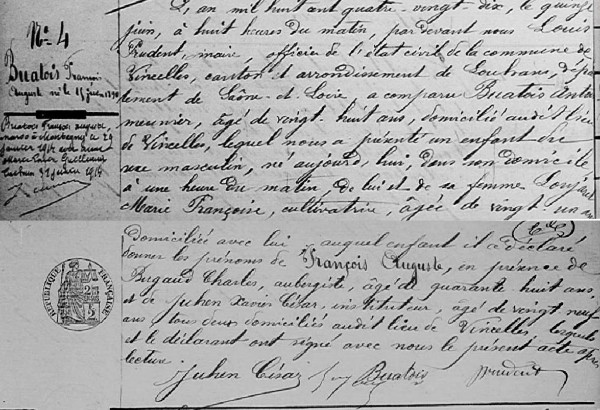 No 4
Buatois François
Auguste né le 15 juin 1890
Buatois François Auguste,
marié à
janvier 1914 avec
31 janvier 1914
L'an mil huit cent quatre-vingt dix, le quinze
juin, à huit heures du matin, pardevant nous Louis
Prudent, maire officier de l'état civil de la commune de
Vincelles, canton et arrondissement de Louhans, dépar-
tement de Saône-et-Loire a comparu Buatois Antoine
meunier, âgé de vingt-huit ans, domicilié audit lieu
de Vincelles, lequel nous a présenté un enfant du
sexe masculin, né aujourd'hui, dans son domicile
à une heure du matin, de lui et de sa femme
Marie Françoise, cultivatrice, âgée de vingt-un ans
domiciliée avec lui auquel enfant il a déclaré
donner les prénoms de François Auguste, en présence de
Bugaud Charles, aubergiste, âgé de quarante huit ans
et de Julien Xavier César, instituteur, âgé de vingt neuf
ans, tous deux domiciliés audit lieu de Vincelles, lesquels
et le déclarant ont signé avec nous le présent acte après
lecture.
Julien César Buatois Prudent
RÉPUBLIQUE FRANÇAISE